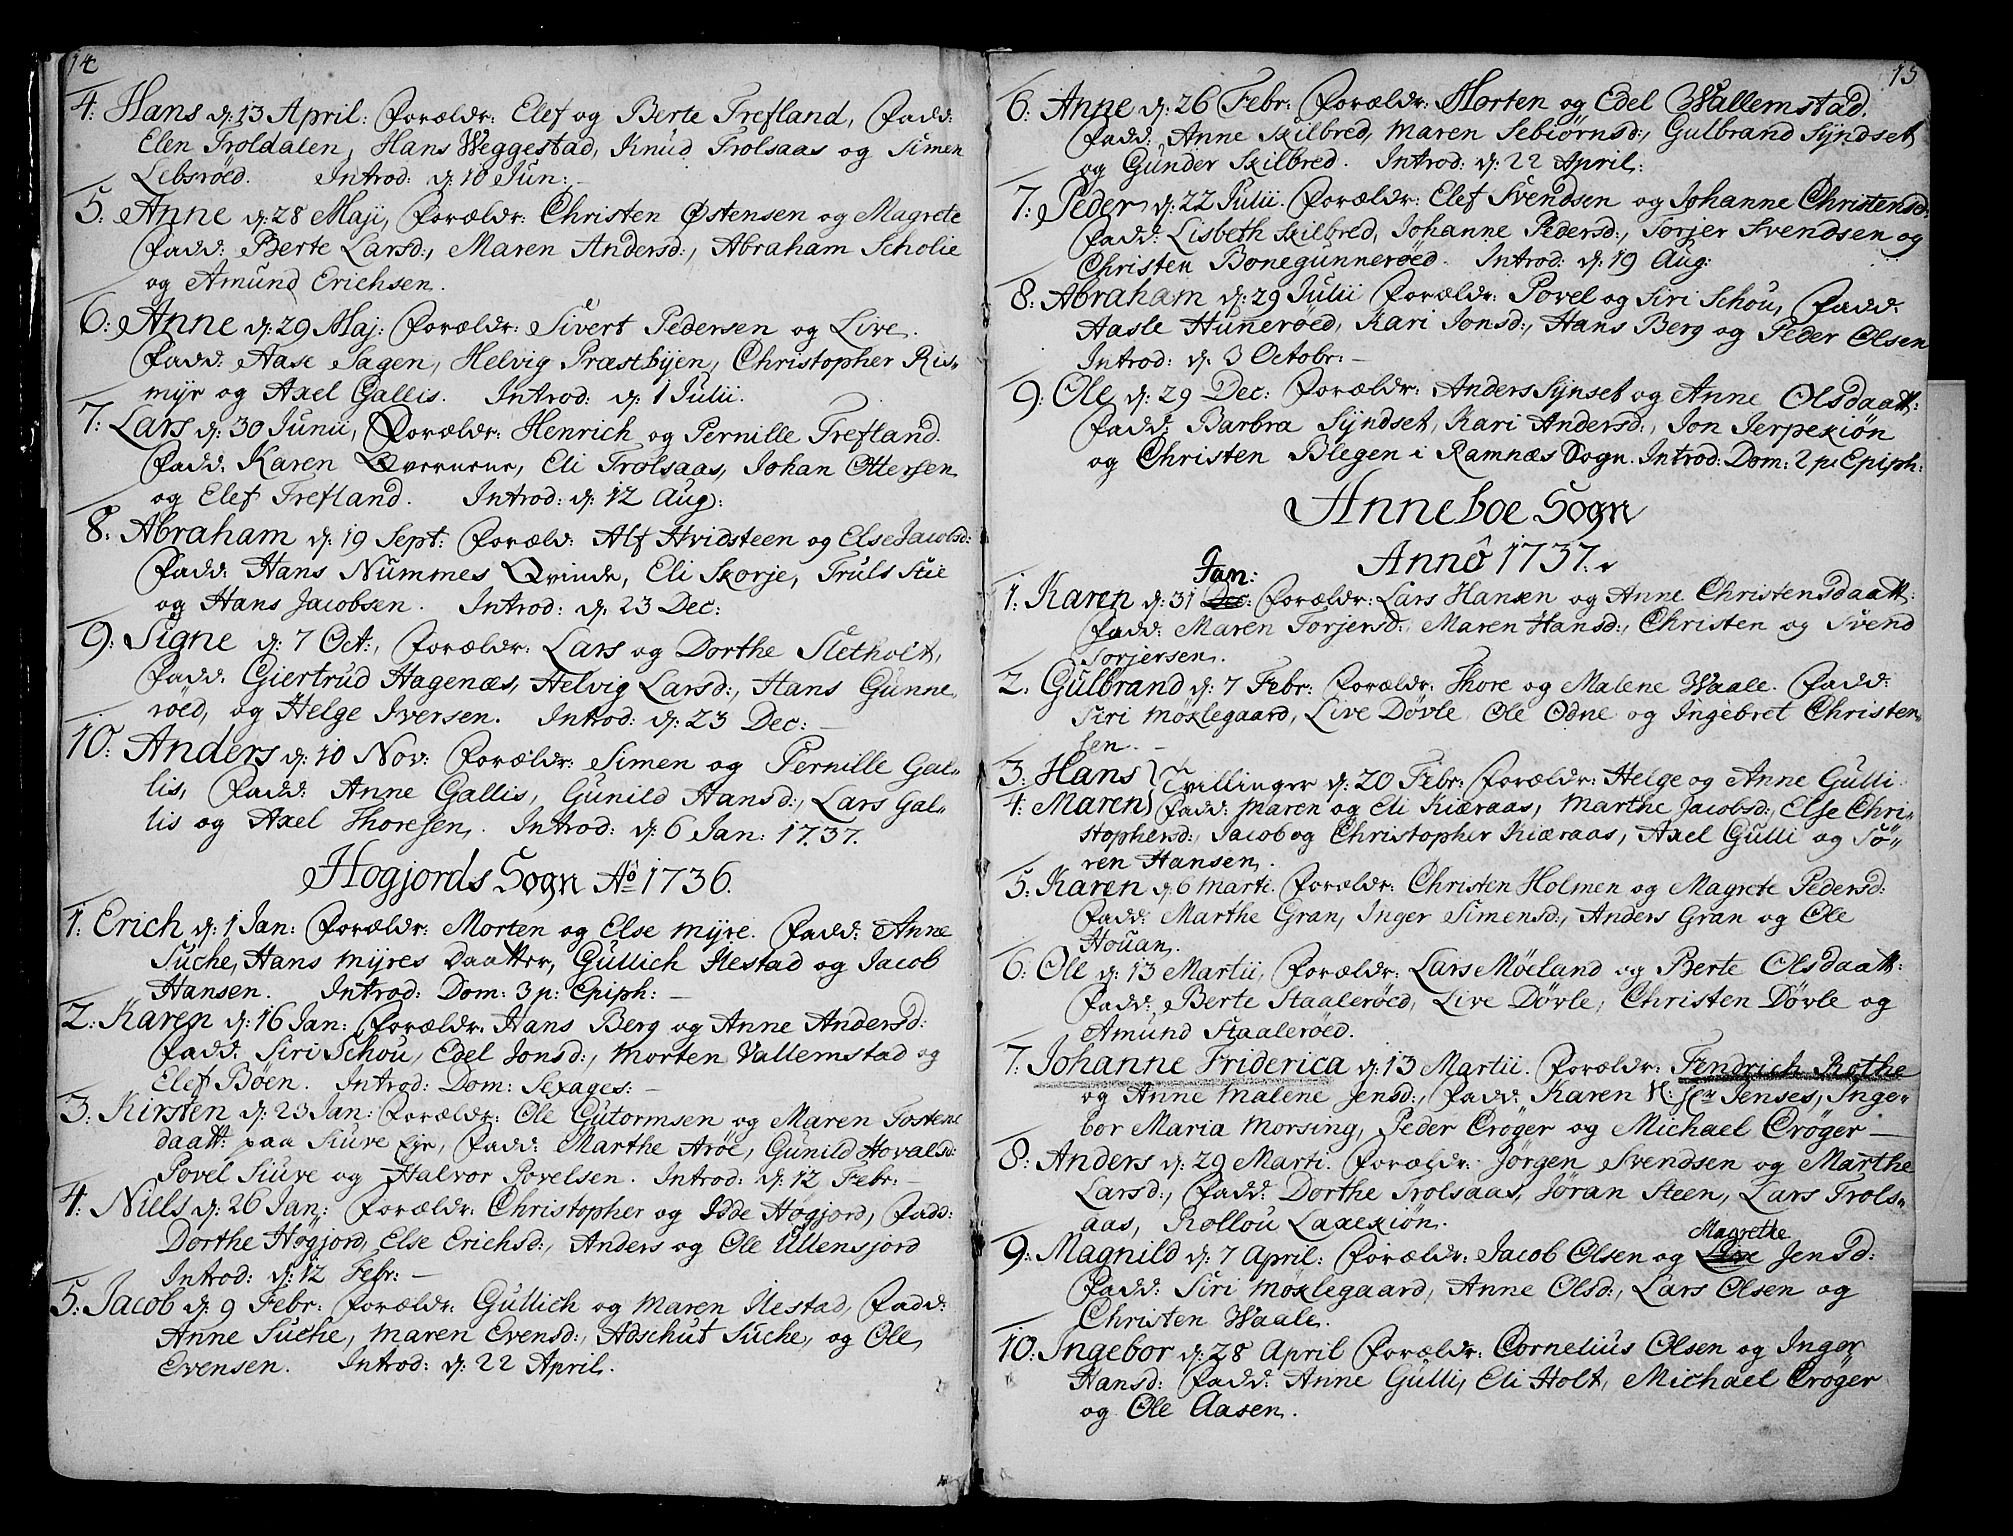 14
4: Hans d: 13 April: Forældr: Elef og Berte Trefland, Fadd:
Elen Troldalen, Hans Weggestad, Knud Trolsaas og Simen
Lebsröed. Introd: d: 10 Jun: –
5: Anne d: 28 Maji, Forældr: Christen Østensen og Magrete
Fadd: Berte Larsd:, Maren Andersd:, Abraham Scholie
og Amund Erichsen.
6: Anne d: 29 Maj: Forældr: Sivert Pedersen og Live.
Fadd: Aase Sagen, Helvig Præstbyen, Christopher Ris-
myr og Axel Gallis. Introd: d: 1 Julii.
7: Lars d: 30 Junii, Forældr: Henrich og Pernille Trefland.
Fadd: Karen Qvernene, Eli Trolsaas, Johan Ottersen
og Elef Trefland. Introd: d: 12 Aug:
8: Abraham d: 19 Sept: Foræld: Alf Hvidsteen og Else Jacobsd:
Fadd: Hans Nummes Qvinde, Eli Skorje, Truls Stie
og Hans Jacobsen. Introd: d: 23 Dec:
9: Signe d: 7 Oct:, Forældr: Lars og Dorthe Sletholt,
Fadd: Giertrud Hagenæs, Helvig Larsd:, Hans Gunne-
röed, og Helge Iversen. Introd: d: 23 Dec: –
10: Anders d: 10 Nov: Forældr: Simen og Pernille Gal-
lis, Fadd: Anne Gallis, Gunild Hansd:, Lars Gal-
lis og Axel Thoresen. Introd: d: 6 Jan: 1737.
Hogjords Sogn Aō 1736.
1: Erich d: 1 Jan: Forældr: Morten og Else Myre. Fadd: Anne
Suche, Hans Myres Daatter, Gullich Ilestad og Jacob
Hansen. Introd: Dom: 3 p: Epiph: –
2: Karen d: 16 Jan: Forældr: Hans Berg og Anne Andersd:
Fadd: Siri Schou, Edel Jonsd:, Morten Vallemstad og
Elef Böen. Introd: Dom: Sexages: –
3: Kirsten d: 23 Jan: Forældr: Ole Gutormsen og Maren Tostens
daatt: paa Siuve Eje, Fadd: Marthe Aröe, Gunild Hovalsd:
Povel Siuve og Halvor Povelsen. Introd: d: 12 Febr: –
4: Niels d: 26 Jan: Forældr: Christopher og Idde Högjord, Fadd:
Dorthe Högjord, Else Erichsd:, Anders og Ole Ullensjord
Introd: d: 12 Febr: –
5: Jacob d: 9 Febr: Forældr: Gullich og Maren Ilestad, Fadd:
Anne Suche, Maren Evensd:, Adschut Suche, og Ole
Evensen. Introd: d: 22 April.
15
6: Anne d: 26 Febr: Forældr: Morten og Edel Wallemstad.
Fadd: Anne Skilbred, Maren Sebiörnsd:, Gulbrand Syndset
og Gunder Skilbred. Introd: d: 22 April:
7: Peder d: 22 Julii. Forældr: Elef Svendsen og Johanne Christensd:
Fadd: Lisbeth Skilbred, Johanne Pedersd:, Torjer Svendsen og
Christen Bonegunneröed. Introd: d: 19 Aug:
8: Abraham d: 29 Julii Forældr: Povel og Siri Schou, Fadd:
Aasle Huneröed, Kari Jonsd:, Hans Berg og Peder Olsen
Introd: d: 3 Octobr: –
9: Ole d: 29 Dec: Forældr: Anders Synset og Anne Olsdaatt:
Fadd: Barbra Syndset, Kari Andersd:, Jon Jerpekiön
og Christen Blegen i Ramnæs Sogn. Introd: Dom: 2 p: Epiph:
Anneboe Sogn
Annô 1737.
Jan:
1: Karen d: 31 Dec: Forældr: Lars Hansen og Anne Christensdaatt:
Fadd: Maren Torjersd:, Maren Hansd:, Christen og Svend
Torjersen.
2: Gulbrand d: 7 Febr: Forældr: Thore og Malene Waale. Fadd:
Siri Möxlegaard, Live Dövle, Ole Odne og Ingebret Christen-
sen. –
3: Hans } Tvillinger d: 20 Febr: Forældr: Helge og Anne Gulli
4: Maren } Fadd: Maren og Eli Kiæraas, Marthe Jacobsd:, Else Chri-
stophersd:, Jacob og Christopher Kiæraas, Axel Gulli og Sö-
ren Hansen.
5: Karen d: 6 Marti. Forældr: Christen Holmen og Magrete Pedersd:
Fadd: Marthe Gran, Inger Simensd:, Anders Gran og Ole
Houan.
6: Ole d: 13 Martii, Forældr: Lars Möeland og Berte Olsdaatt:
Fadd: Berte Staaleröed, Live Dövle, Christen Dövle og
Amund Staaleröed.
7: Johanne Friderica d: 13 Martii. Forældr: Fendrich Rothe
og Anne Malene Jensd:, Fadd: Karen Jenses, Inge-
bor Maria Morsing, Peder Cröger og Michael Cröger –
8: Anders d: 29 Marti. Forældr: Jörgen Svendsen og Marthe
Larsd:, Fadd: Dorthe Trolsaas, Jöran Steen, Lars Trols-
aas, Rollou Laxekiön.
Magrethe
9: Magnild d: 7 April: Forældr: Jacob Olsen og Live Jensd:
Fadd: Siri Möxlegaard, Anne Olsd:, Lars Olsen og
Christen Waale.
10: Ingebor d: 28 April Forældr: Cornelius Olsen og Inger
Hansd: Fadd: Anne Gulli, Eli Holt, Michael Cröger
og Ole Aasen.